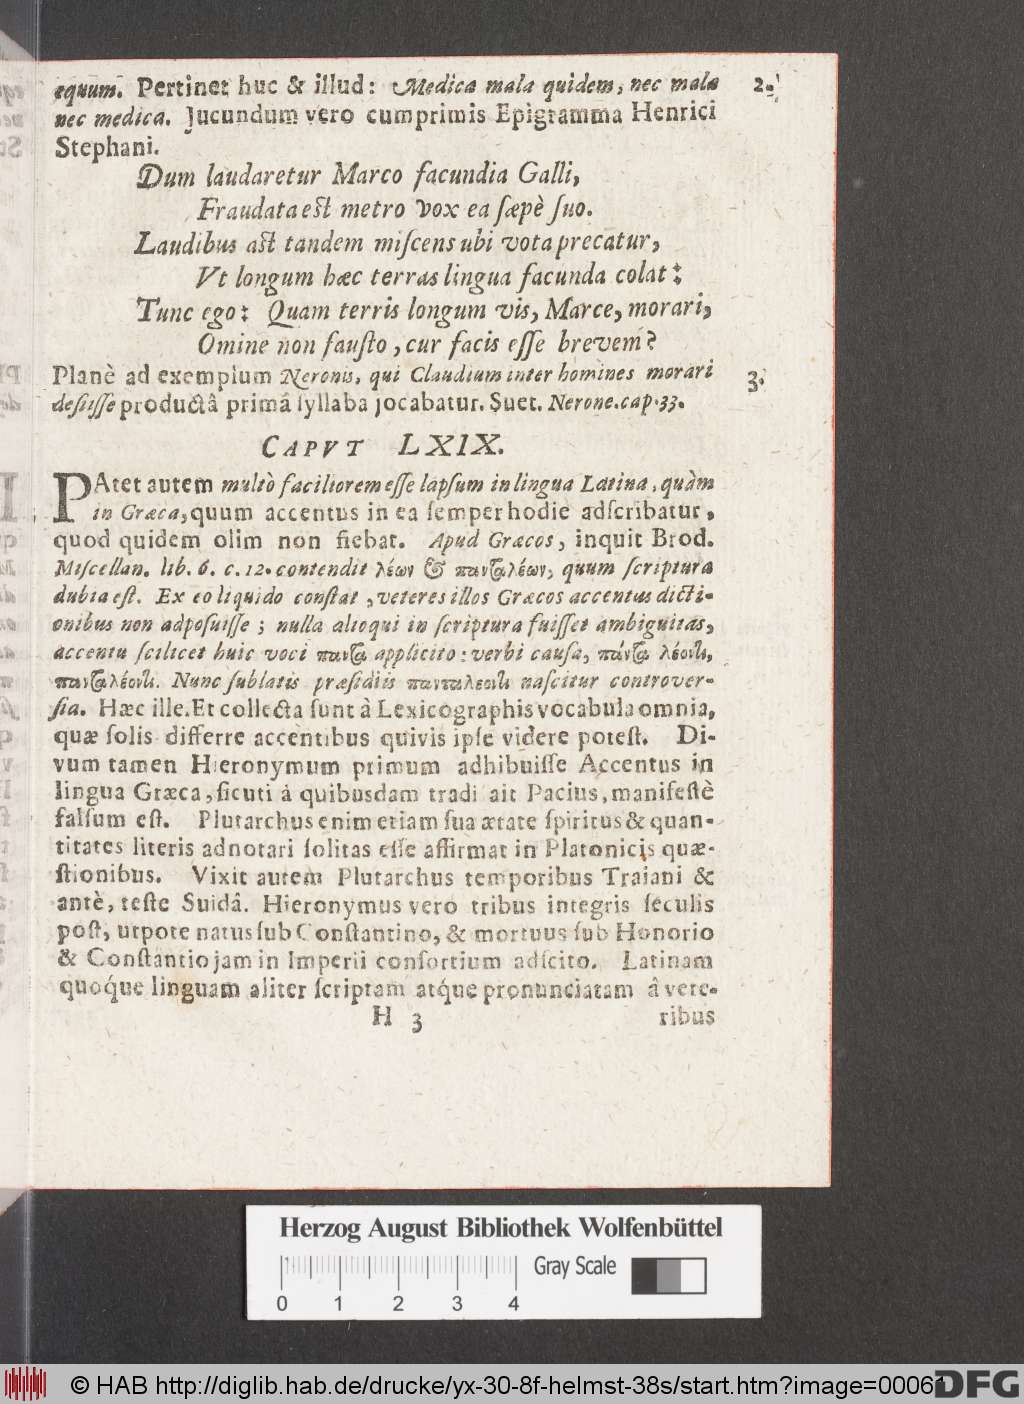 equum. Pertinet huc & illud: Medica mala quidem, nec mala 2.
nec medica. Jucundum vero cumprimis Epigramma Henrici
Stephani.
Dum laudaretur Marco facundia Galli,
Fraudata eſt metro vox ea ſæpè ſuo.
Laudibus aſt tandem miſcens ubi vota precatur,
Vt longum hæc terras lingua facunda colat:
Tunc ego: Quam terris longum vis, Marce, morari,
Omine non fauſto, cur facis eſſe brevem?
Planè ad exemplum Neronis, qui Claudium inter homines morari 3.
deſiiſſe productâ primâ ſyllaba jocabatur. Suet. Nerone. cap. 33.
CAPVT LXIX.
PAtet autem multò faciliorem eſſe lapſum in lingua Latina, quàm
in Græca, quum accentus in ea ſemper hodie adſcribatur,
quod quidem olim non fiebat. Apud Græcos, inquit Brod.
Miſcellan. lib. 6. c. 12. contendit λέων & πανταλέων, quum ſcriptura
dubia eſt. Ex eo liquido conſtat, veteres illos Græcos accentus dicti-
onibus non adpoſuiſſe; nulla alioqui in ſcriptura fuiſſet ambiguitas,
accentu ſcilicet huic voci πανтα applicito: verbi cauſa, πάντα λέοντι,
πανταλέοντι. Nunc ſublatis præſidiis πανταλεοντι naſcitur controver-
ſia. Hæc ille. Et collecta ſunt â Lexicographis vocabula omnia,
quæ ſolis differre accentibus quivis ipſe videre poteſt. Di-
vum tamen Hieronymum primum adhibuiſſe Accentus in
lingua Græca, ſicuti á quibusdam tradi ait Pacius, manifeſtè
falſum eſt. Plutarchus enim etiam ſua ætate ſpiritus & quan-
titates literis adnotari ſolitas eſſe affirmat in Platonicis quæ-
ſtionibus. Vixit autem Plutarchus temporibus Traiani &
antè, teſte Suidâ. Hieronymus vero tribus integris ſeculis
poſt, utpote natus ſub Conſtantino, & mortuus ſub Honorio
& Conſtantio jam in Imperii conſortium adſcito. Latinam
quoq́ue linguam aliter ſcriptam atq́ue pronunciatam â vete-
H 3 ribus
Herzog August Bibliothek Wolfenbüttel
Gray Scale
0 1 2 3 4
© HAB http://diglib.hab.de/drucke/yx-30-8f-helmst-38s/start.htm?image=00061
DFG